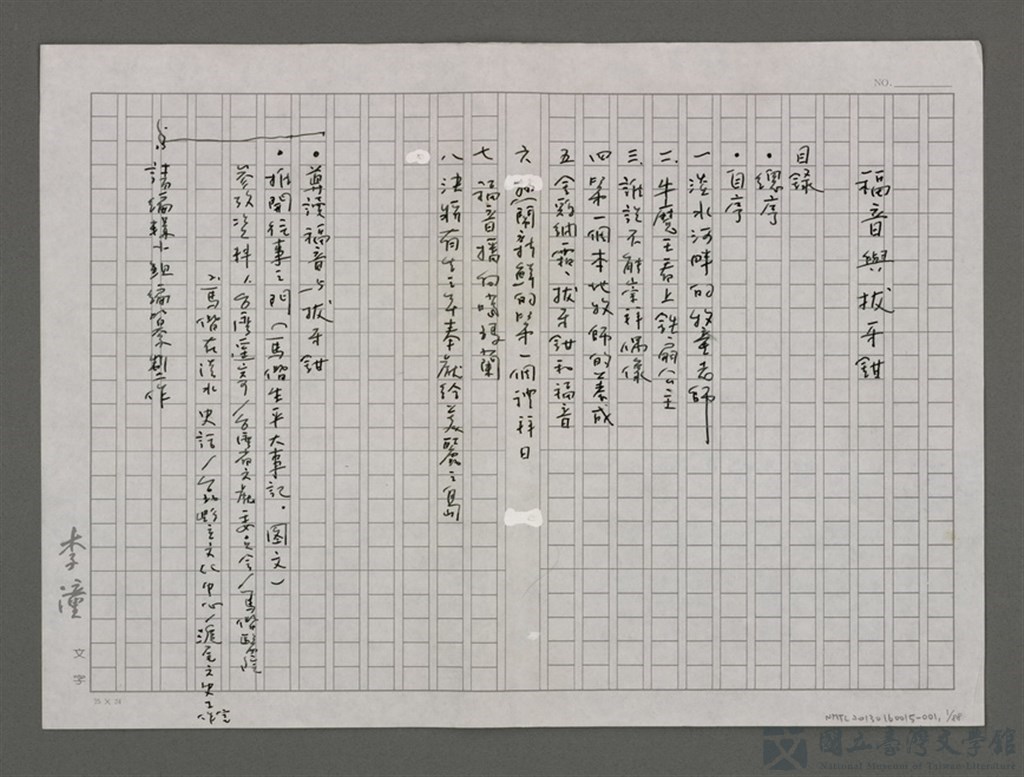 NO.
福音與拔牙鉗
目錄
•總序
•自序
一 淡水河畔的牧童老師
二 牛魔王看上鐵扇公主
三 誰說不能崇拜偶像
四 第一個本地牧師的養成
五 金雞納霜、拔牙鉗和福音
六 新鮮的第一個神拜日
七 福音播向噶瑪蘭
八 決將有生之年奉獻給美麗之島
•尊讀福音与拔牙鉗
•推開往事之門(馬偕生平大事記•圖文)
參攷資料 1.台灣遙寄/台灣省文献委員会/馬偕醫院
2.馬偕在淡水史話/台北縣立文化中心/滬尾文史工作室
請編輯小組編寫製作
李潼
文字
25 X 24
NMTL20130160015-001, 1/88
國立臺灣文學館
National Museum of Taiwan Literature